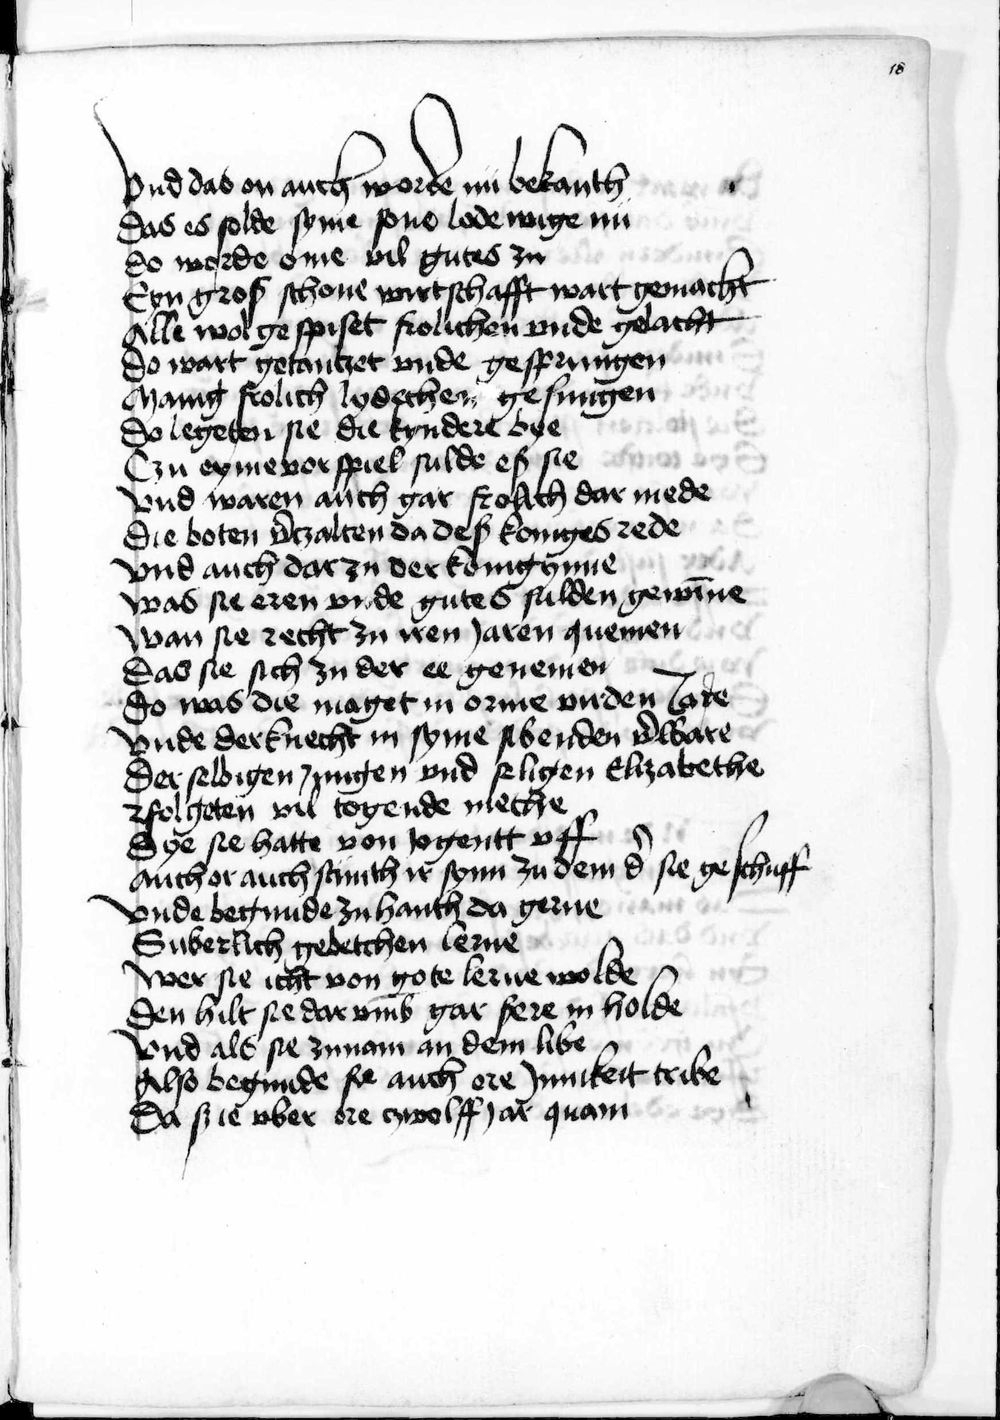 18
Vnd das on auch worde nu bekanth
Das es solde syme sone lodewige nu
do worde ome vil gutes zu
Eyn groß schone wirtschafft wart gemacht
Alle wol gespiset frolichen vnde gelacht
Do wart getantzet vnde gesprungen
Manig frolich lydechen gesungen
Do legeten sie die kyndere bye
Czu eyme vorspiel sulde eß sie
Vnd waren auch gar frolich dar mede
Die boten v̓tzalten da deß koniges rede
Vnd auch dar zu der konigynne
Was sie eren vnde gutes sulden gewīne
Wan sie recht zu iren jaren quemen
Das sie sich zu der ee genemen
Do was die maget in orme virden Jare
Vnde der knecht in syme sibenden v̓ware
Der selbigen jungen vnd seligen Elizabethe
folgeten vil togende methe
Dye sie hatte von jogentt vff
Auch or auch sich ir synn zu dem d̓ sie geschuff
Vnde begunde zu hanth da gerne
Suberlich gebetchen lerne
Wer sie icht von gote lerne wolde
Den hilt sie dar vmb gar sere in holde
Vnd als sie zunam an dem libe
Also begunde sie auch ore Jnnikeit tribe
Da sie vber ore czwolff jar quam